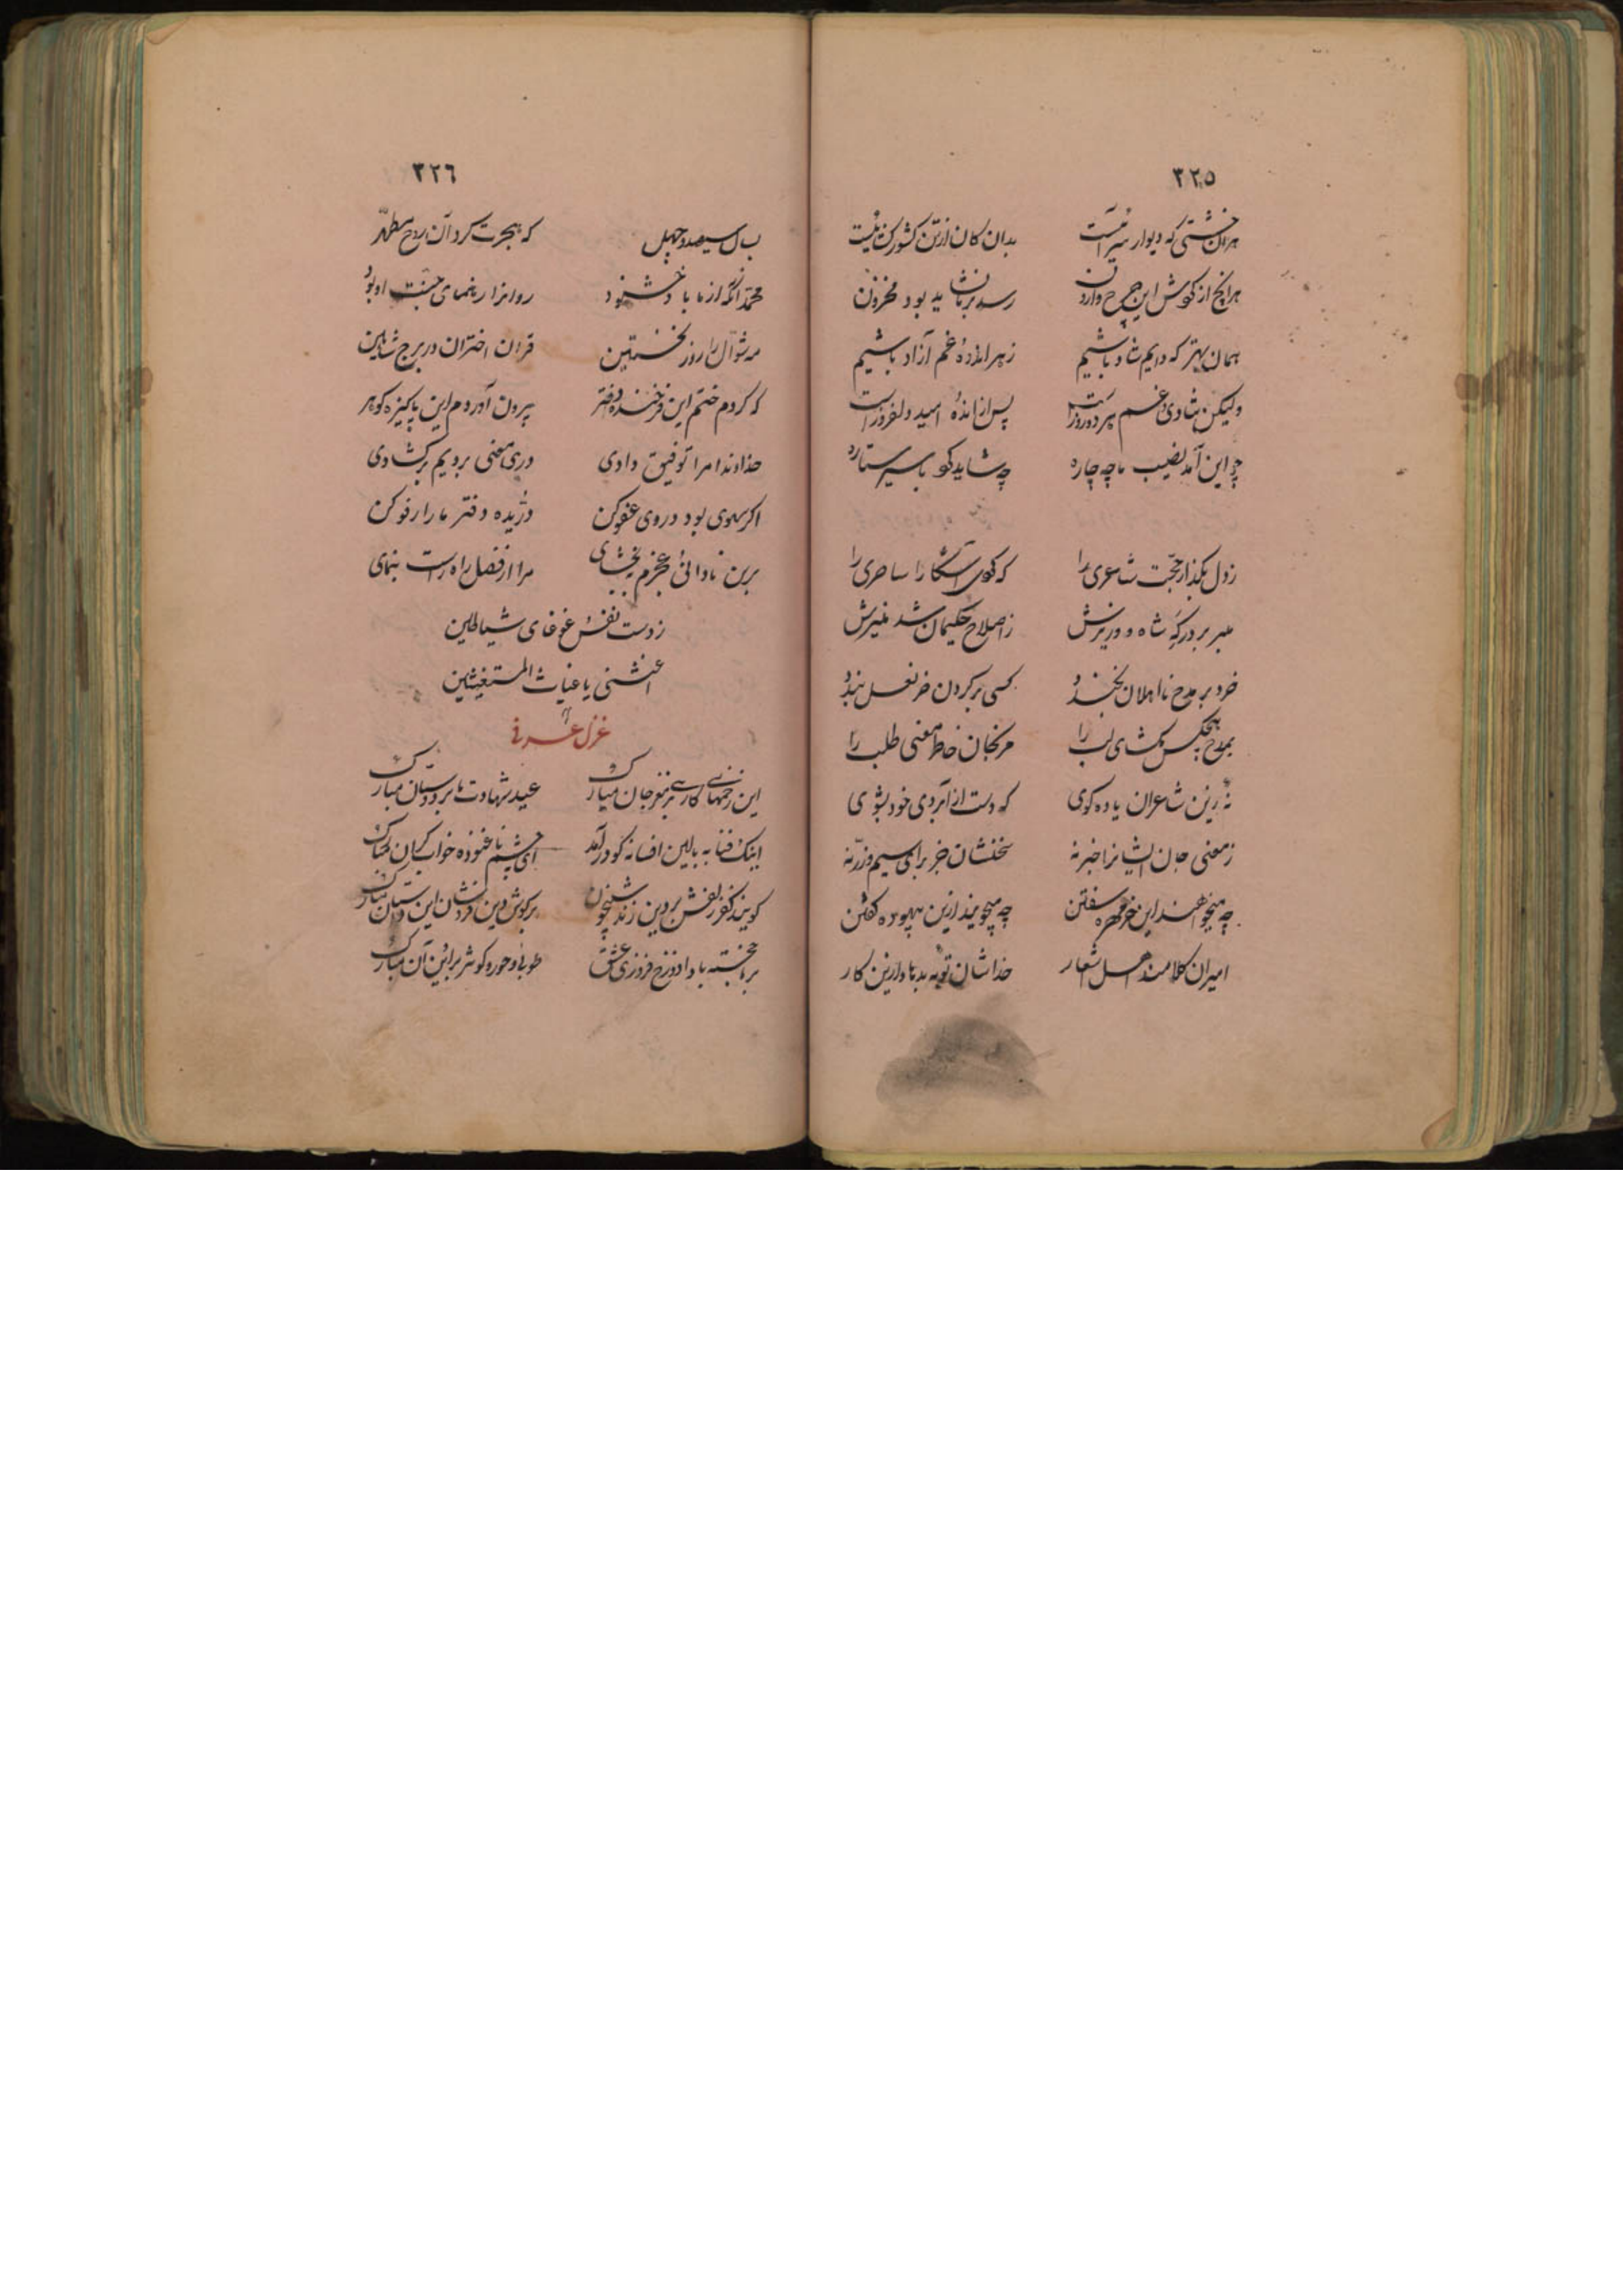 ٣٢٥
هرآن خشتی که دیوار سرائیست بدان کان از تن کشورکدائیست
هرانچ از کردش این چرخ وارون رسد برما نشاید بود محزون
همان بهتر که دایم شاد باشیم زهر اندوه غم آزاد باشیم
ولیکن شادی و غم سپرده روزاست پس از اندوه امید دلفروزاست
چو این آمد نصیب ما چه چاره چه شاید کو با سیر ستاره
ز دل بکذار حجت شاعری را که کوی آشکارا ساحری را
مبر بر درکه شاه و وزیرش ز اصلاح حکیمان شد منیرش
خرد بر مدح نااهلان بخندد کسی بر کردن خر نعل بندد
بمدح هیچکس مکشای لب را مرنجان خاطر معنی طلب را
نهٔ زین شاعران یاده کوی که دست از آبروی خود بشوی
ز معنی جان ایشانرا خبر نه سخنشان خر برای سیم و زر نه
چه میخواهند ازین خر مهره سفتن چه میجویند ازین بیهوده کفتن
امیران کلامند اهل اشعار خداشان توبه بدهادا ازین کار
٣٢٦
بسال سیصد و چهل که هجرت کرد آن روح مطهر
محمد آنکه از ما باد خشنود روانرا رهنمای جنت او بود
مه شوال را روز نخستین قران اختران در برج شاهین
که کردم ختم این فرخنده دفتر بیرون آوردم این پاکیزه کوهر
خداوندا مرا توفیق دادی دری معنی برویم برکشادی
اکر سهوی بود در وی عفو کن دریده دفتر ما را رفو کن
برین نادانی و عجزم ببخشای مرا از فضل راه راست بنمای
ز دست نفس غوغای شیاطین
اغثنی یا غیاث المستغیثین
غزل عرفی
این زخمهای کاری بر مغز جان مبارک عید شهادت ما بر دوستان مبارک
اینک فنا به بالین افسانه کو درآمد ای چشم ناغنوده خواب کران مبارک
کویند کفر زلفش بر دین زند شبیخون بر کوش دین فروشان این داستان مبارک
برما خجسته بادا دوزخ فروزی عشق طوبی و حور و کوثر بر این و آن مبارک